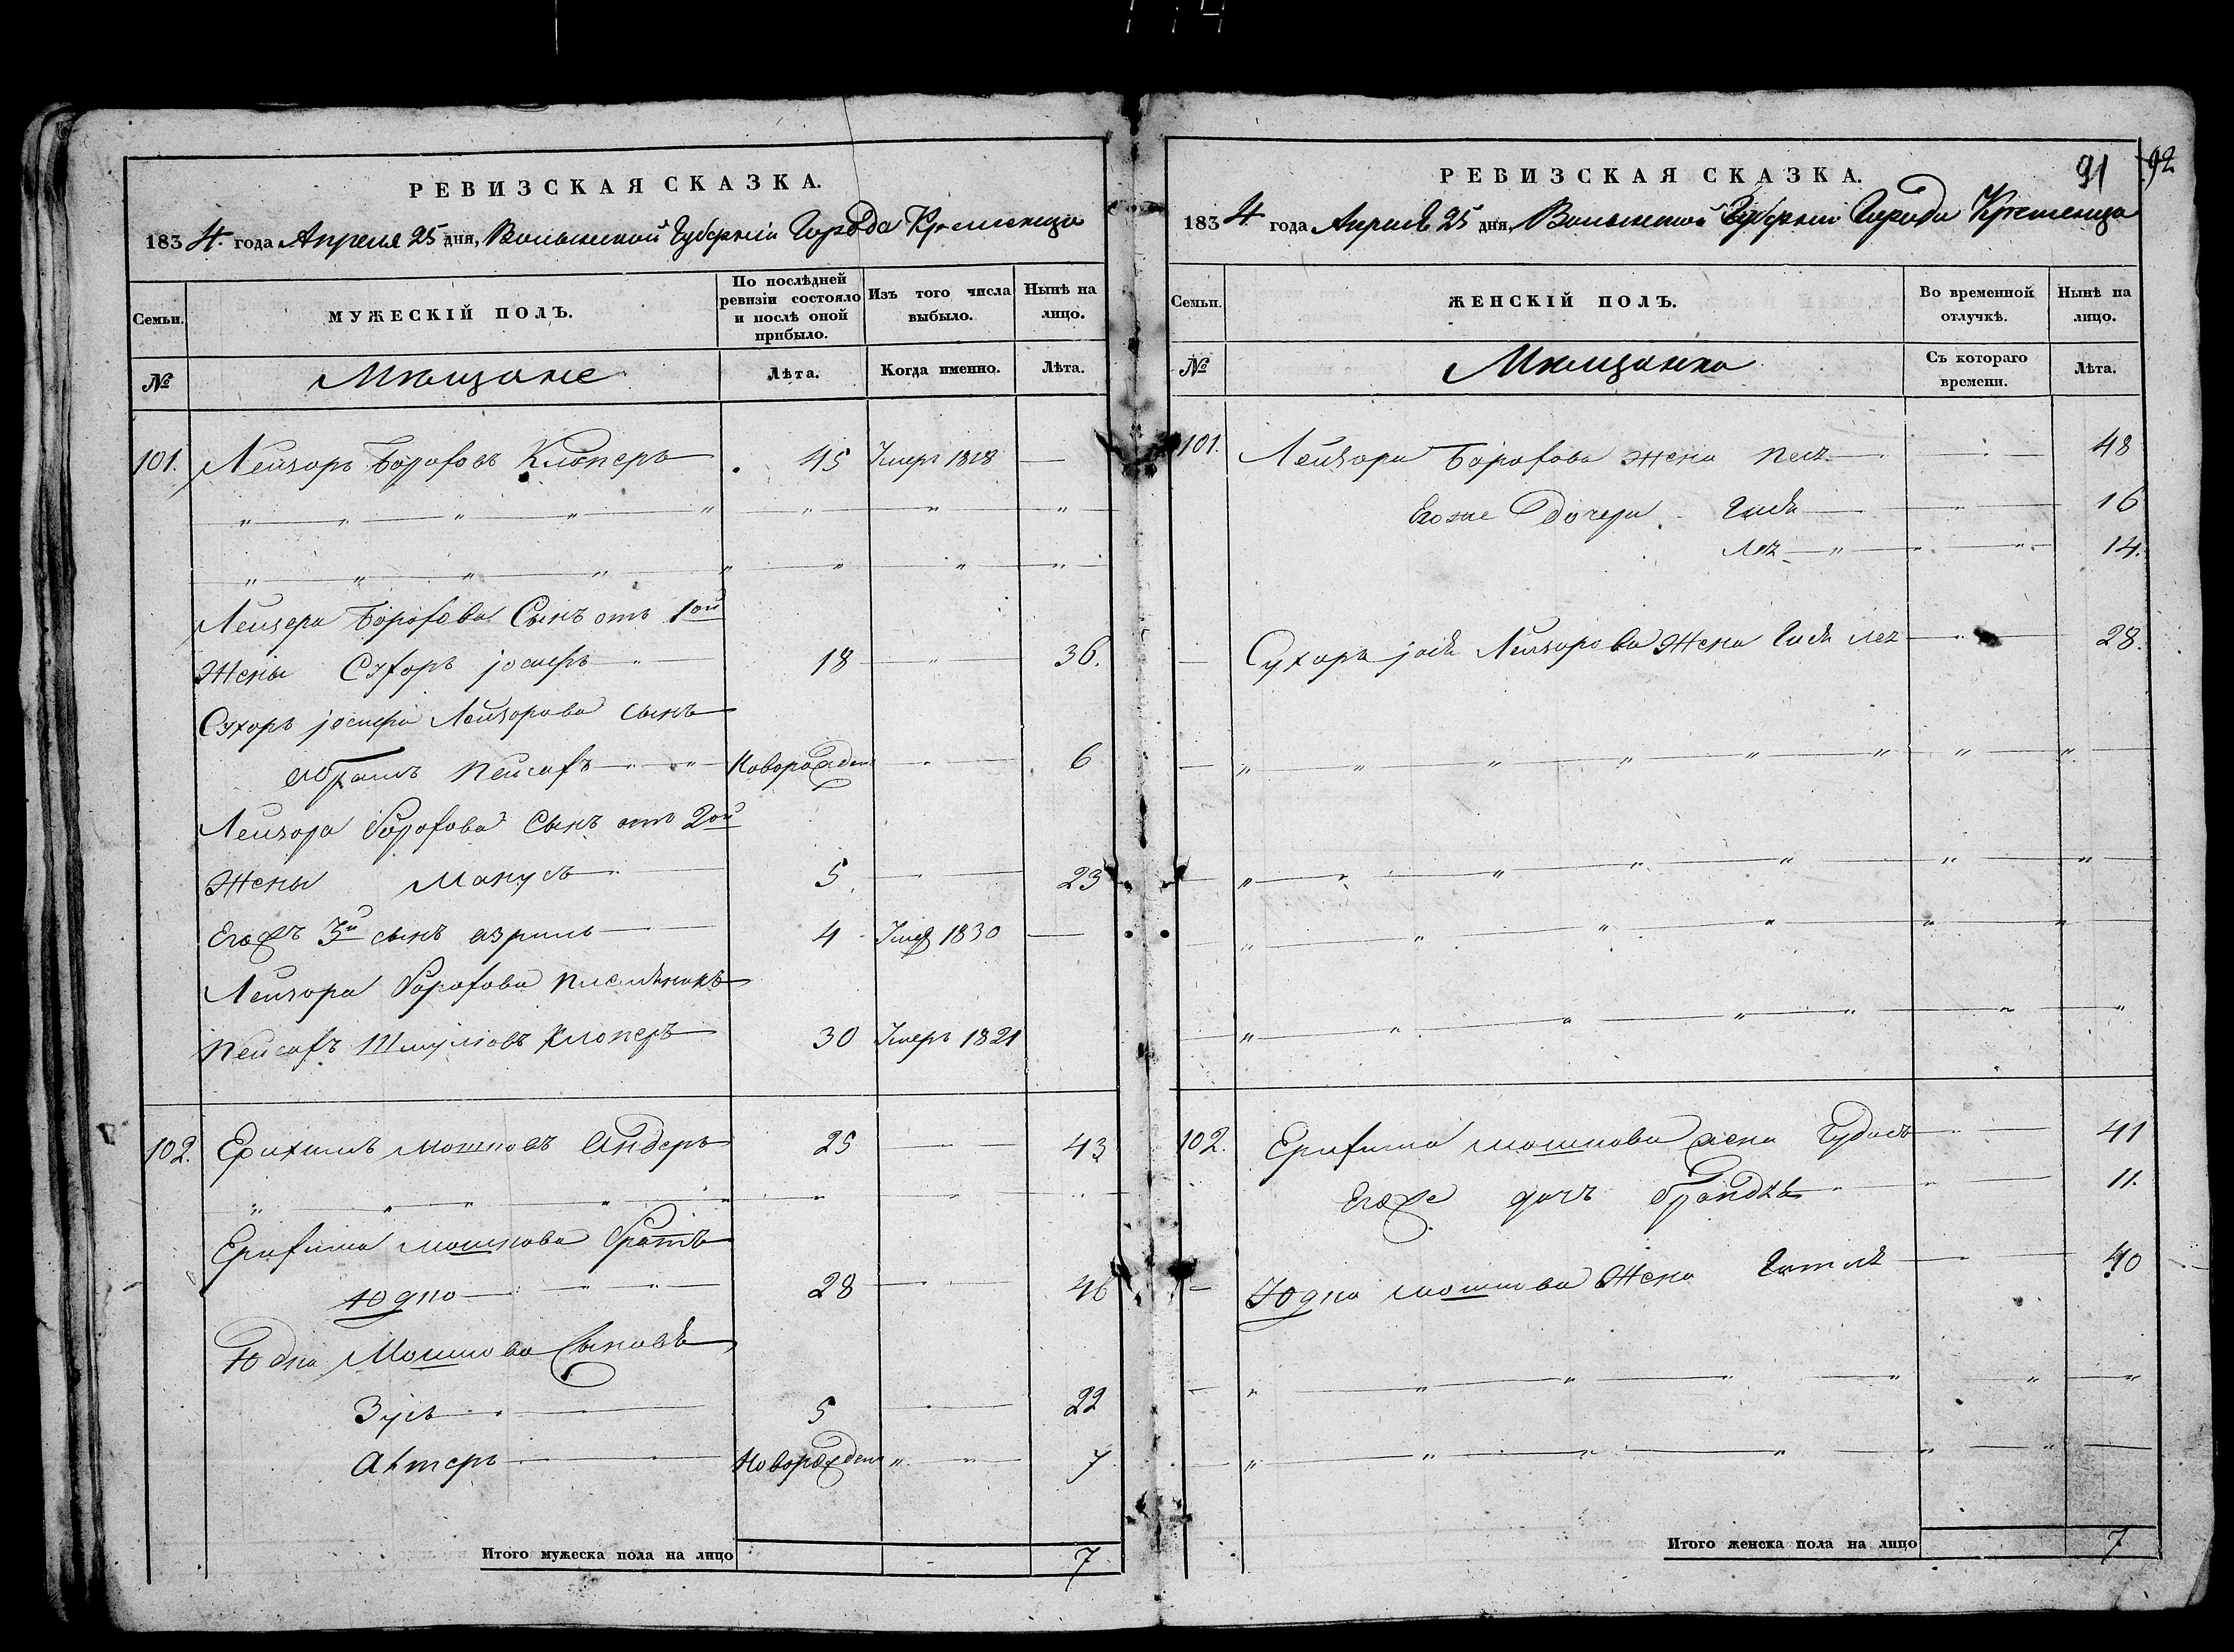 РЕВИЗСКАЯ СКАЗКА.
1834 года Апреля 25 дня, Волынской Губерніи Города Кременца
Семьи. МУЖЕСКІЙ ПОЛЪ. По послѣдней ревизіи состояло и послѣ оной прибыло. Изъ того числа выбыло. Нынѣ на лицо.
№ Мѣщане Лѣта. Когда именно. Лѣта.
101. Лейзоръ Борофовъ Клоперъ 45 Умеръ 1828 —
Лейзера Борофова Сынъ отъ 1ой
Жены Сухоръ іосифъ 18 — 36.
Сухоръ іосифа Лейзорова сынъ
абрамъ Пейсафъ Новорожден 6
Лейзора Борофова Сынъ отъ 2ой
Жены Манусъ 5. — 23
Егожъ 3й сынъ азриль 4 Умер 1830 —
Лейзора Борофова племѣникъ
Пейсафъ Шмулювъ Клоперъ 30 Умеръ 1821
102. Ерихимъ мошковъ андеръ 25 — 43
Ерифима мошкова братъ
Юдко 28 — 46
Юдка Мошкова Сыновѣ
Зусь 5 — 22
Алтеръ Новорожден 7
Итого мужеска пола на лицо 7
РЕВИЗСКАЯ СКАЗКА.
91 92
1834 года Апреля 25 дня, Волынской Губерніи Города Кременца
Семьи. ЖЕНСКІЙ ПОЛЪ. Во временной отлучкѣ. Нынѣ на лицо.
№ Мѣщанки Съ котораго времени. Лѣта.
101. Лейзора Борофова жена — 48
Егоже Дочери 16
Лея 14.
Сухоръ Лейзорова Жена 28.
102. Ерифима мошкова жена 41
Егоже дочъ брандля 11.
Юдка мошкова Жена Гитля 40
Итого женска пола на лицо 7